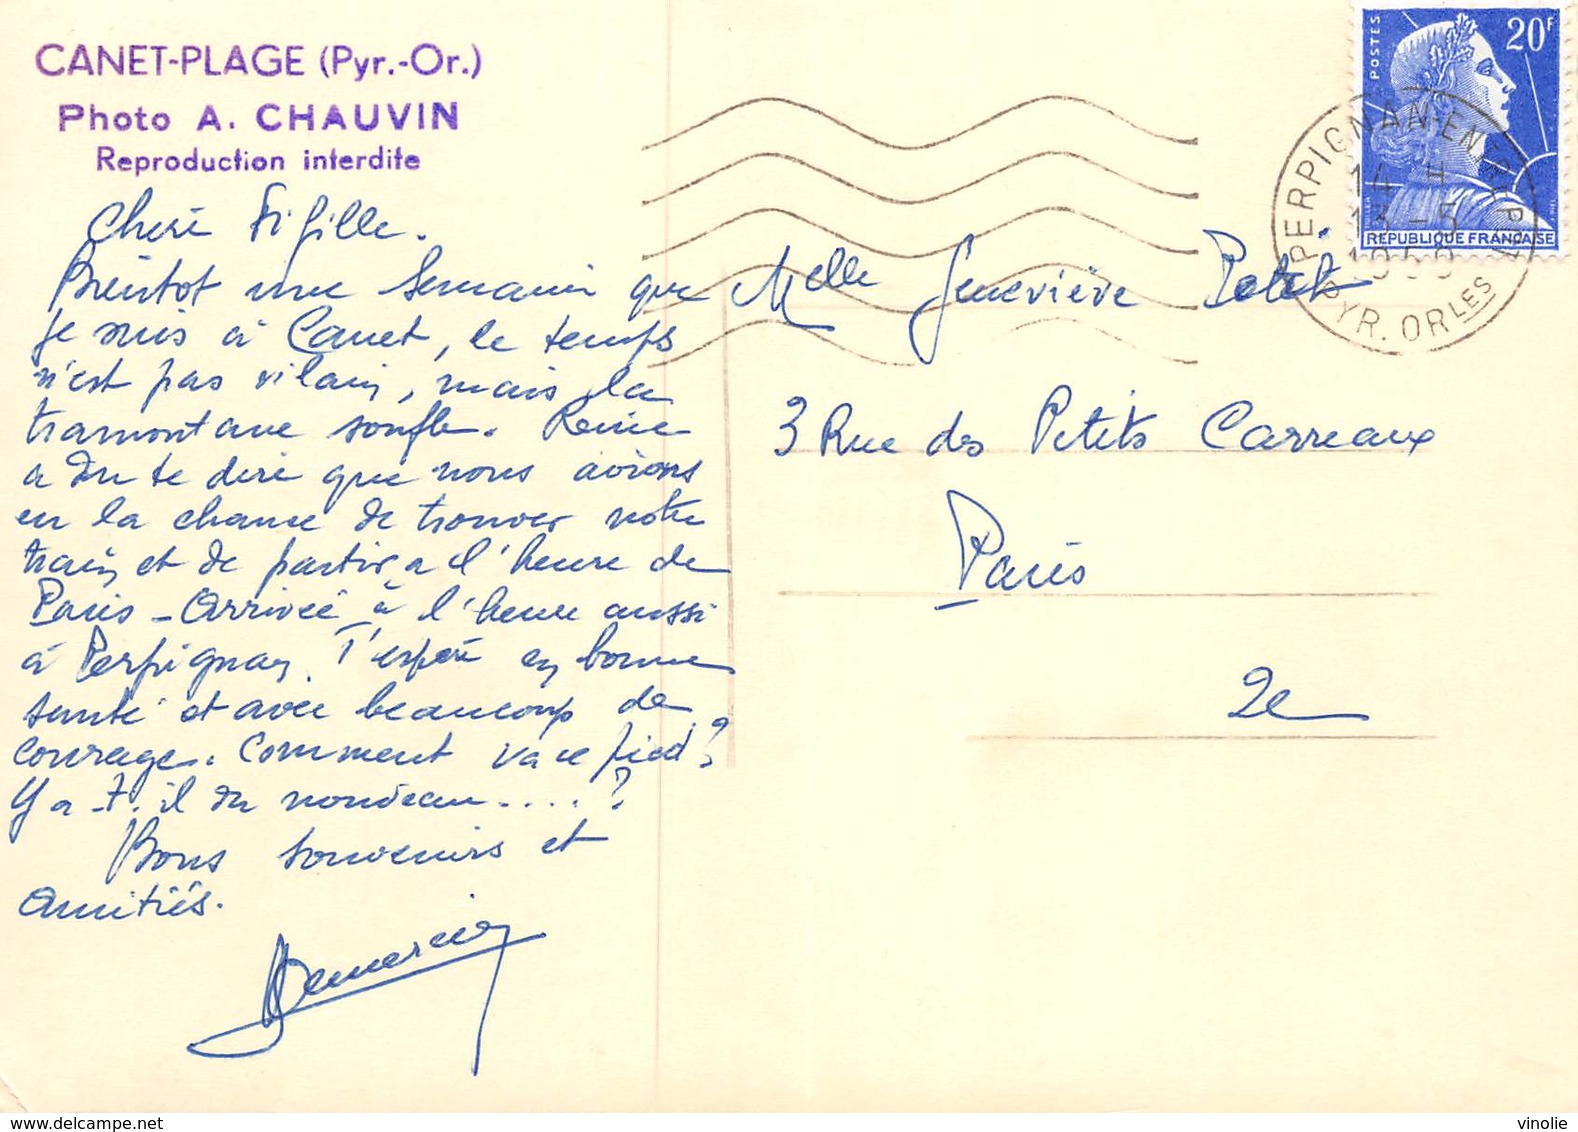 CANET-PLAGE (Pyr.-Or.)
Photo A. CHAUVIN
Reproduction interdite
Chère Fifille.
Bientôt une Semaine que
je suis à Canet, le temps
n'est pas vilain, mais la
tramontane souffle. Renée
a du te dire que nous avions
eu la chance de trouver notre
train et de partir à l'heure de
Paris - Arrivée à l'heure aussi
à Perpignan. J'espère en bonne
santé et avec beaucoup de
courage. Comment va ce pied?
Y a-t-il du nouveau....?
Bons souvenirs et
amitiés.
Melle Geneviève Petit
3 Rue des Petits Carreaux
Paris
2e
POSTES
20F
REPUBLIQUE FRANÇAISE
PERPIGNAN-ENTREPOT
14 H
13-5
PYR. ORLES
vinolie